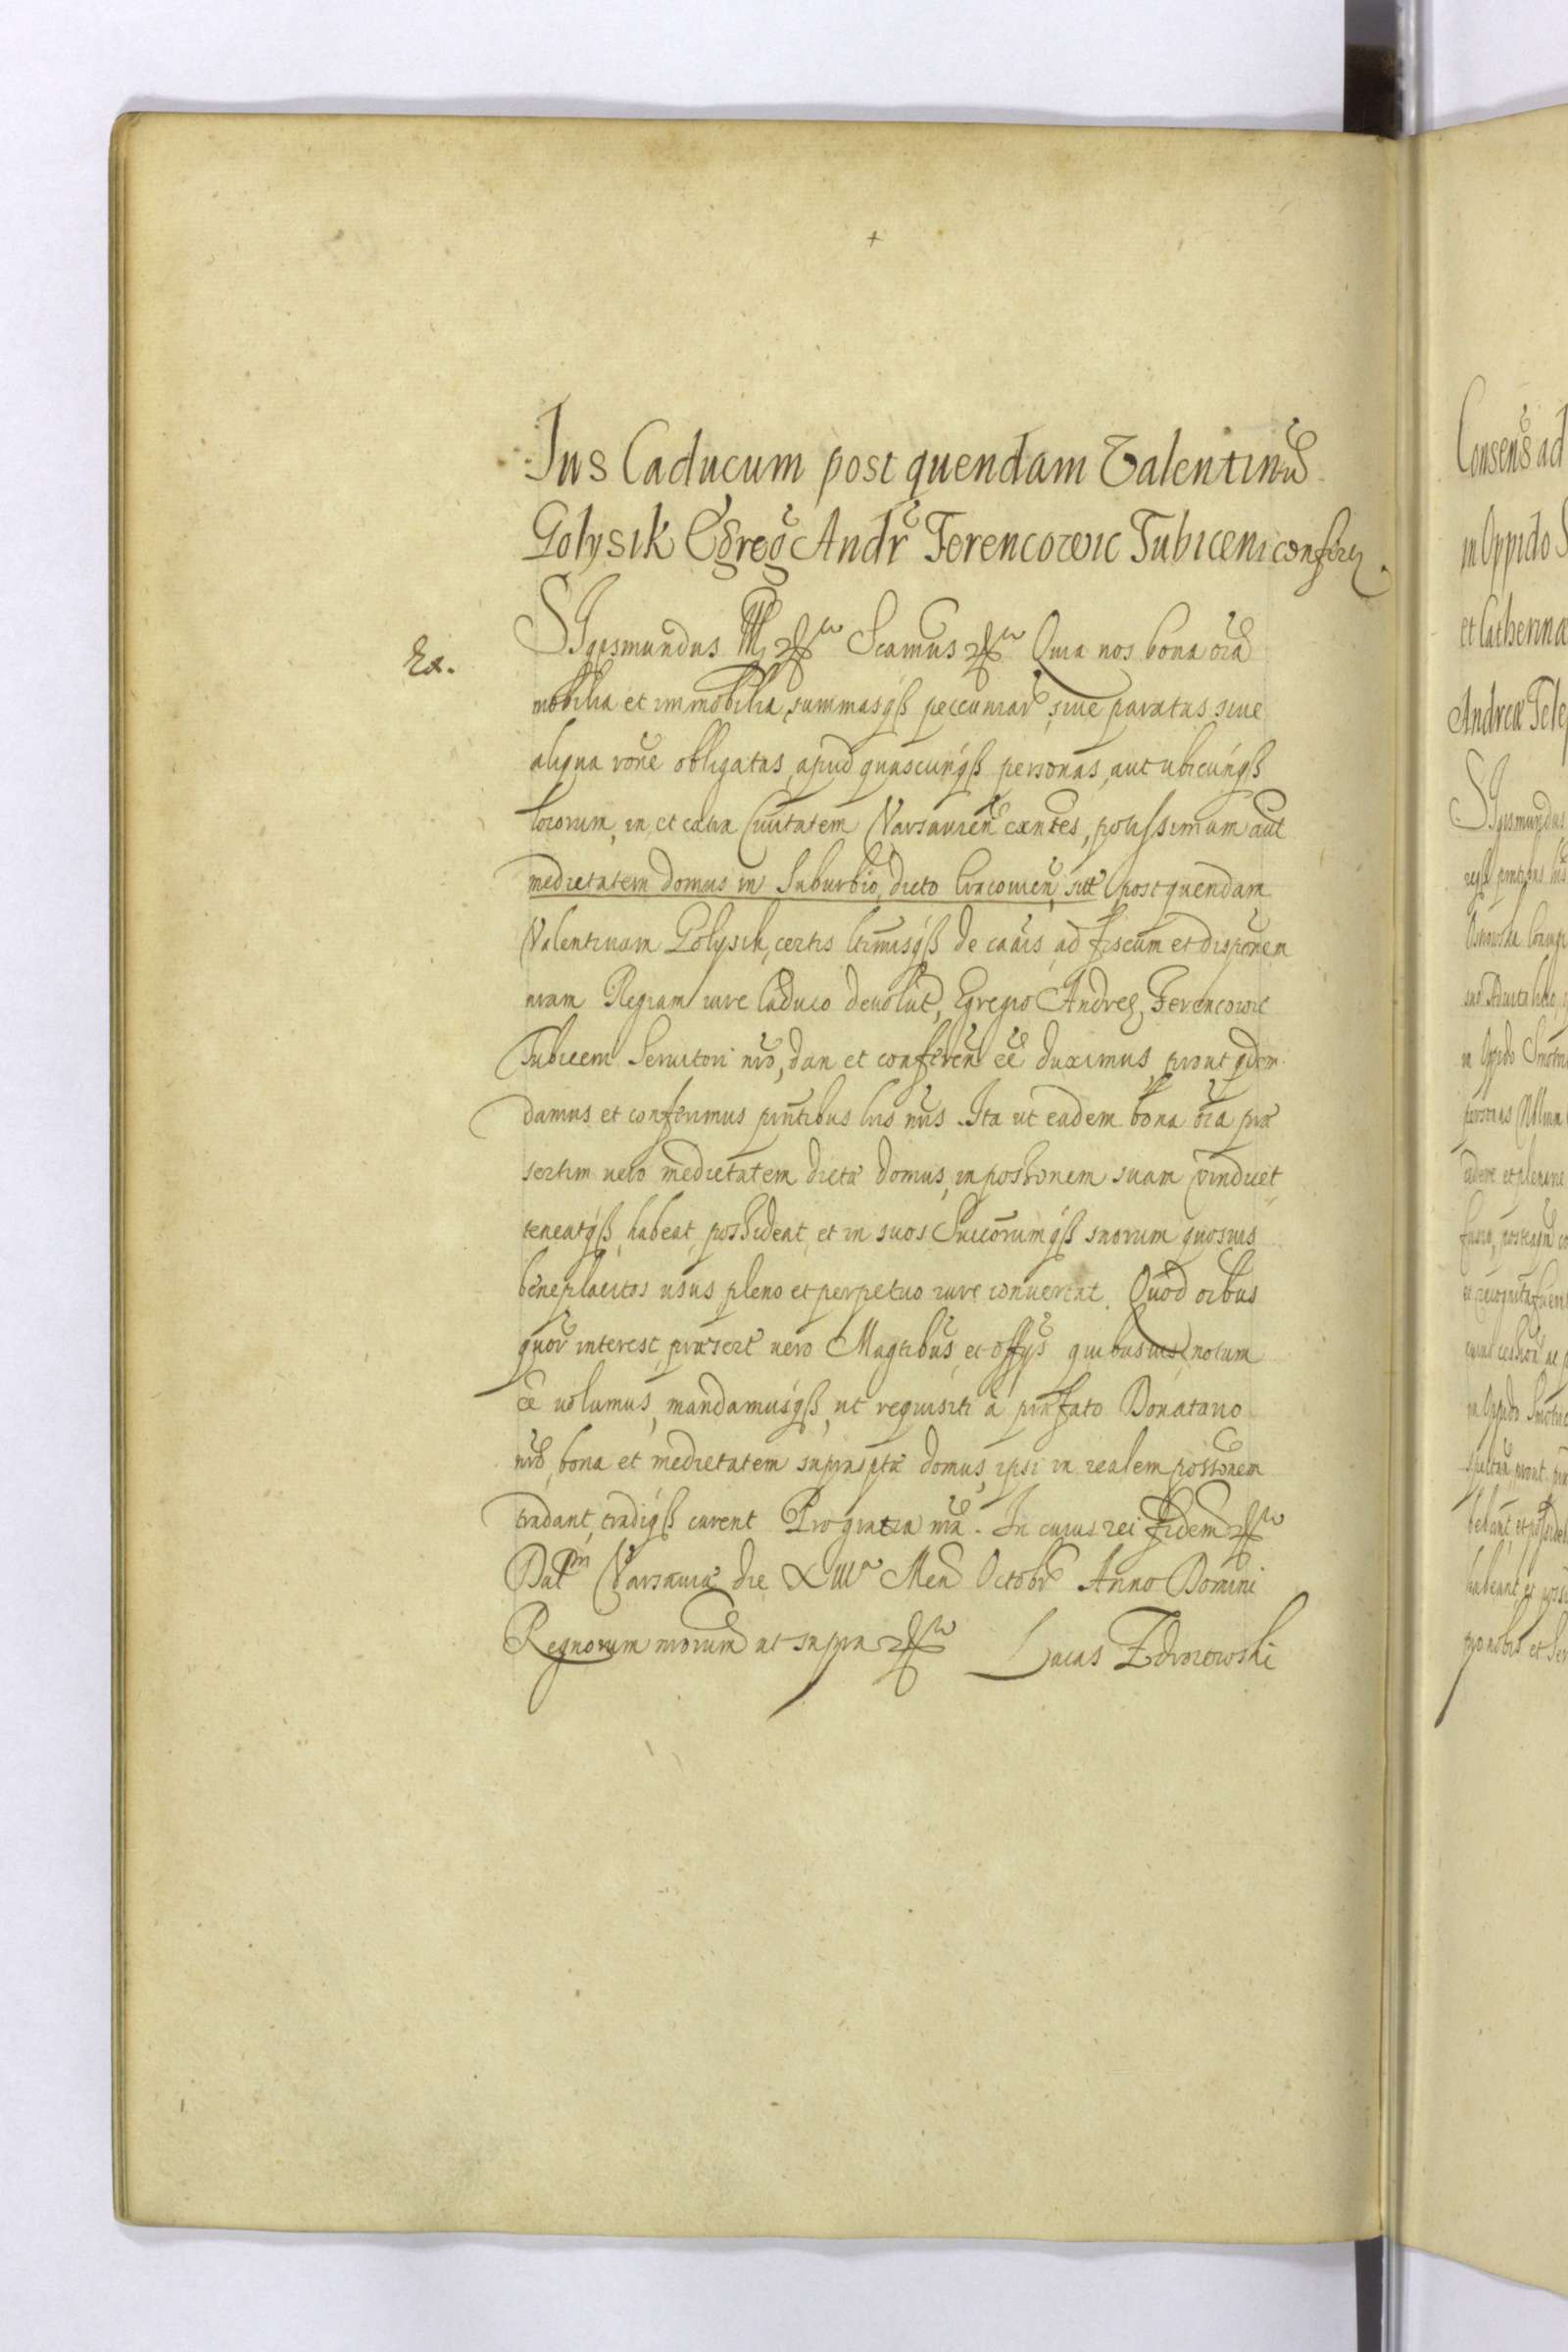 +
Ius Caducum post quendam Valentinū
Golysik Egreg Andr Ferencowic Tubiceni confertꝫ.
Ex.
SIgismundus III etc Scamus etc Quia nos bona oīa
mobilia et immobilia, summasqß peccuniar, siue paratas siue
aliqua rōne obligatas, apud quascunqß personas, aut ubicunqß
locorum, in et extra Ciuitatem Varsauien̄ exn̄tes, potissimum aut
medietatem domus in Suburbio, dicto Cracouien̄, sitt post quendam
Valentinum Golysik, certis ltīmisqß de caūis, ad fiscum et dispōnem
nram Regiam iure Caduco deuolūt, Egregio Andreę Ferencowic
Tubiceni Seruitori nrō, dan et conferen̄ eē duximus, prout qdem
damus et conferimus pn̄tibus lris nr̄is. Ita ut eadem bona oīa præ
sertim uero medietatem dictæ domus, in possonem suam vindicet,
teneatqß, habeat, possideat, et in suos Succorumqß suorum quosuis
beneplacitos usus pleno et perpetuo iure conuertat. Quod oībus
quor interest, præsert uero Magtibus et offys quibusuis notum
eē uolumus, mandamusqß, ut requisiti à præfato Donatario
nrō, bona et medietatem suprasptæ domus, ipsi in realem possonem
tradant, tradiqß curent Pro gratia nrā. In cuius rei fidem etc
Datm Varsauiæ die XIII Men Octobr Anno Domini
Regnorum nrorum ut supra etc Lucas Zdrorowski
Consens ad
in Oppido S
et Catherinæ
Andreæ Tele
SIgismundus
in Oppido